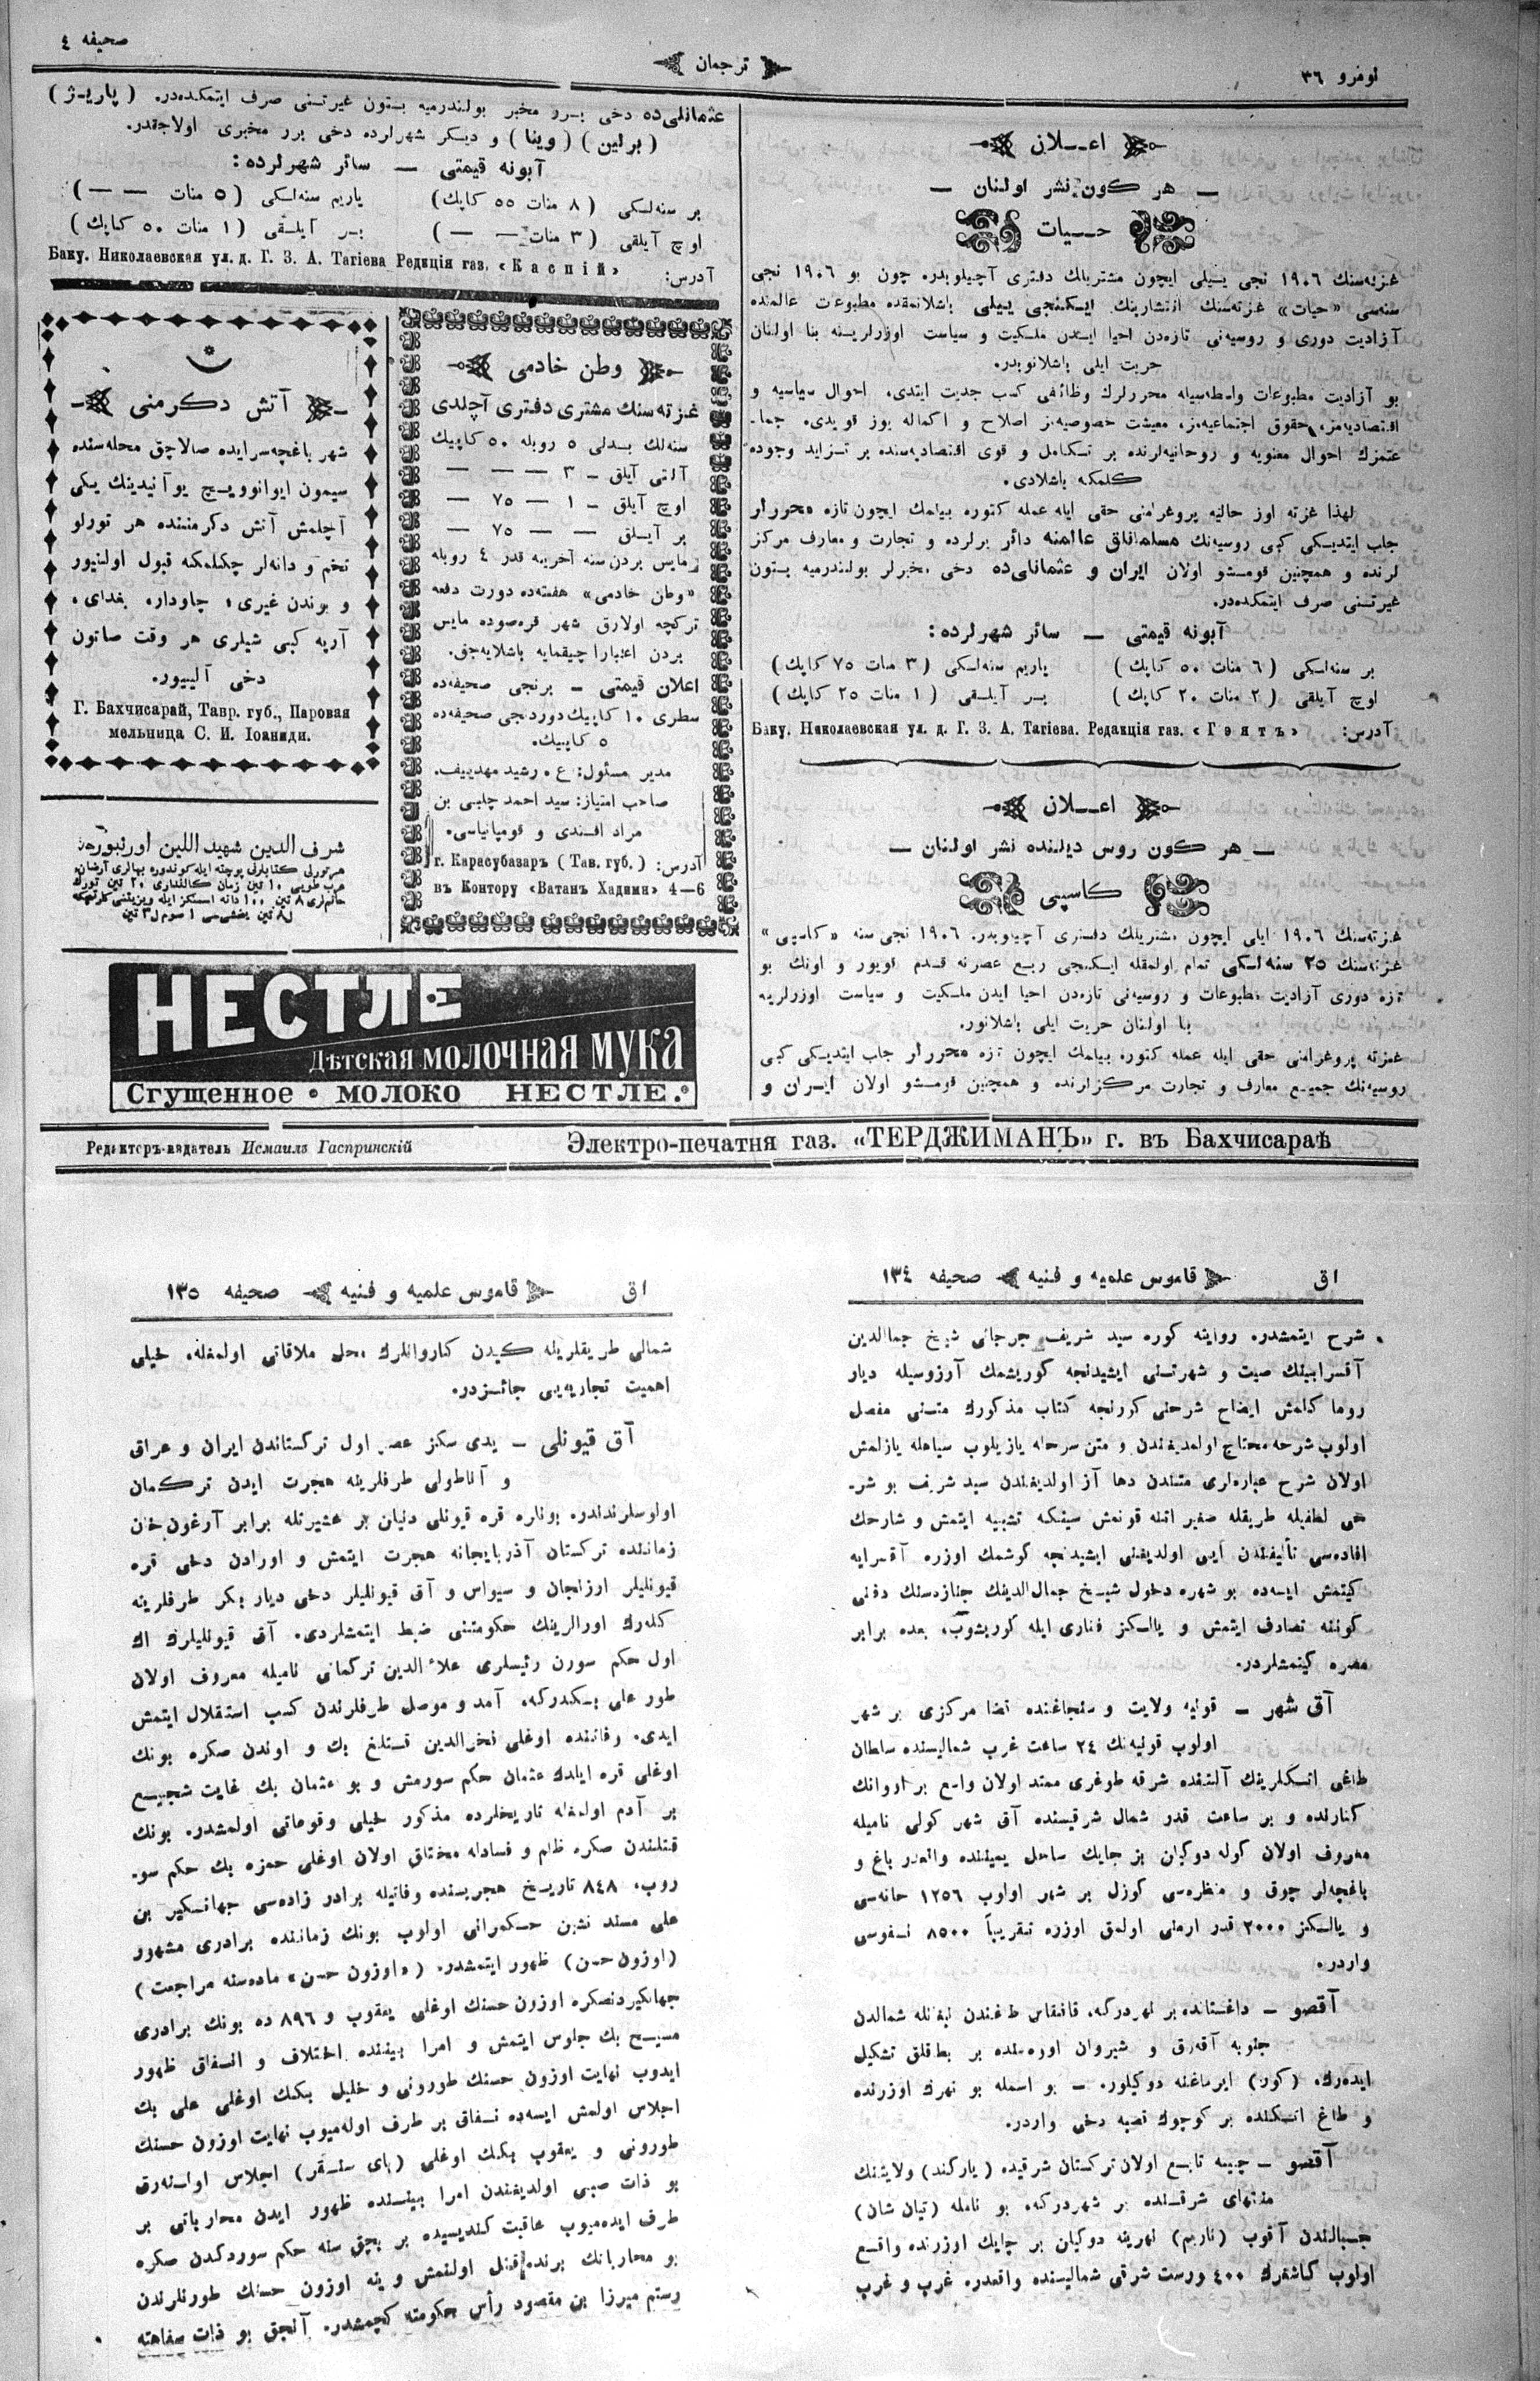 نومرو ٣٦
ترجمان
صحيفه ٤
اعــلان
— هر كون نشر اولنان —
حــيات
غزته‌سنك ١٩٠٦ نجى ييلى ايچون مشتريلك دفترى آچيلوبدر. چون بو ١٩٠٦ نجى
سنه‌سى «حيات» غزته‌سنك انتشارينك ايكنجى ييلى باشلانمقده مطبوعات عالمنده
آزاديت دورى و روسيه‌نى تازه‌دن احيا ايدن ملكيت و سياست اوزرلرينه بنا اولنان
حريت ايلى باشلانوبدر.
بو آزاديت مطبوعات واسطه‌سيله محررلرك وظائفى كسب جديت ايتدى. احوال سياسيه و
اقتصاديه‌مز، حقوق اجتماعيه‌مز، معيشت خصوصيه‌مز اصلاح و اكماله يوز قويدى. جما-
عتمزك احوال معنويه و روحانيه‌لرنده بر تكامل و قوى اقتصاديه‌سنده بر تزايد وجوده
كلمكه باشلادى.
لهذا غزته اوز حاليه پروغرامنى حقى ايله عمله كتوره بيلمك ايچون تازه محررلر
جلب ايتديكى كبى روسيه‌نك مسلمانلق عالمنه دائر يرلرده و تجارت و معارف مركز
لرنده و همچنين قومشو اولان ايران و عثمانلى‌ده دخى مخبرلر بولندرميه بستون
غيرتنى صرف ايتمكده‌در.
آبونه قيمتى — سائر شهرلرده:
بر سنه‌لكى (٦ منات ٥٠ كاپك) ياريم سنه‌لكى (٣ منات ٧٥ كاپك)
اوچ آيلقى (٢ منات ٢٠ كاپك) بــر آيلــقى (١ منات ٢٥ كاپك)
آدرس: Баку. Николаевская ул. д. Г. З. А. Тагіева. Редакція газ. «Гэятъ»
اعــلان
— هر كون روس ديلنده نشر اولنان —
كاسپى
غزته‌سنك ١٩٠٦ ايلى ايچون مشتريلك دفترى آچيلوبدر. ١٩٠٦ نجى سنه «كاسپى»
غزته‌سنك ٢٥ سنه‌لكى تمام اولمقله ايكنجى ربع عصرنه قدم قويور و اونك بو
تازه دورى آزاديت مطبوعات و روسيه‌نى تازه‌دن احيا ايدن ملكيت و سياست اوزرلرينه
بنا اولنان حريت ايلى باشلانور.
غزته پروغرامنى حقى ايله عمله كتوره بيلمك ايچون تازه محررلر جلب ايتديكى كبى
روسيه‌نك جميع معارف و تجارت مركزلرنده و همچنين قومشو اولان ايران و
عثمانلى‌ده دخى بــرر مخبر بولندرميه بستون غيرتنى صرف ايتمكده‌در. (پاريژ)
(برلين) (وينا) و ديكر شهرلرده دخى برر مخبرى اولاجقدر.
آبونه قيمتى — سائر شهرلرده:
بر سنه‌لكى (٨ منات ٥٥ كاپك) ياريم سنه‌لكى (٥ منات — —)
اوچ آيلقى (٣ منات — —) بــر آيلــقى (١ منات ٥٠ كاپك)
آدرس: Баку. Николаевская ул. д. Г. З. А. Тагіева Редкція газ. «Каспій»
وطن خادمى
غزته‌سنك مشترى دفترى آچلدى
سنه‌لك بــدلى ٥ روبله ٥٠ كاپيك
آلتى آيلق — ٣ — —
اوچ آيلق — ١ — ٧٥ —
بر آيــلق — — ٧٥ —
مايس بردن سنه آخرينه قدر ٤ روبله
«وطن خادمى» هفته‌ده دورت دفعه
تركچه اولارق شهر قره‌صوده مايس
بردن اعتبارا چيقمايه باشلايه‌جق.
اعلان قيمتى — برنجى صحيفه‌ده
سطرى ١٠ كاپيك دوردنجى صحيفه‌ده
٥ كاپيك.
مدير مسئول: ع. رشيد مهدييف.
صاحب امتياز: سيد احمد چلبى بن
مراد افندى و قومپانياسى.
آدرس: г. Карасубазаръ (Тав. губ.)
въ Контору «Ватанъ Хадими» 4—6
آتش دكرمنى
شهر باغچه‌سرايده صالاچق محله‌سنده
سيمون ايوانوويــچ يوآنيدينك يكى
آچلمش آتش دكرمننده هر تورلو
تخم و دانه‌لر چكلمكه قبول اولنيور
و بوندن غيرى؛ چاودار، بغداى،
آرپه كبى شيلرى هر وقت صاتون
دخى آلييور.
Г. Бахчисарай, Тавр. губ., Паровая
мельница С. И. Іоаниди.
شرف الدين شهيد اللين اورنبورغده
هر تورلى كتابلرنى پوچته ايله كوندوره بهالرى آرزان
НЕСТЛЕ
Дѣтская МОЛОЧНАЯ МУКА
Сгущенное • МОЛОКО НЕСТЛЕ.
Редакторъ-издатель Исмаилъ Гаспринскій
Электро-печатня газ. «ТЕРДЖИМАНЪ» г. въ Бахчисараѣ
اق قاموس علميه و فنيه صحيفه ١٣٤
شرح ايتمشدر. روايته كوره سيد شريف جرجانى شيخ جمال‌الدين
آقسرايينك صيت و شهرتنى ايشيدنجه كوريشمك آرزوسيله ديار
روما كلمش ايضاح شرحنى كورنجه كتاب مذكورك متنى مفصل
اولوب شرحه محتاج اولمديغندن و متن سرخله يازيلوب سياهله يازلمش
اولان شرح عباره‌لرى متندن دها آز اولديغندن سيد شريف بو شر-
حى لطفيله طريقله صغير اتنه قونمش سينكه تشبيه ايتمش و شارحك
افاده‌سى تأليفندن آيى اولديغنى ايشيدنجه كوشمك اوزره آقسرايه
كيتمش ايسه‌ده بو شهره دخول شيخ جمال‌الدينك جنازه‌سنك دفنى
كوننه تصادف ايتمش و يالكز فنارى ايله كوريشوب، بعده برابر
مصره كيتمشلردر.
آق شهر — قونيه ولايت و سنجاغنده قضا مركزى بر شهر
اولوب قونيه‌نك ٢٤ ساعت غرب شماليسنده سلطان
طاغى اتكلرينك آلتنده شرقه طوغرى ممتد اولان واسع بر اووانك
كنارنده و بر ساعت قدر شمال شرقيسنده آق شهر كولى ناميله
معروف اولان كوله دوكيلن بر چايك ساحل يميننده واقعدر باغ و
باغچه‌لر چوق و منظره‌سى كوزل بر شهر اولوب ١٢٥٦ خانه‌سى
و يالكز ٢٠٠٠ قدر ارمنى اولمق اوزره تقريباً ٨٥٠٠ نفوسى
واردر.
آقصو — داغستانده بر نهردركه، قافقاس طاغندن نبعانله شمالدن
جنوبه آقه‌رق و شيروان اووه‌سنده بر بطاقلق تشكيل
ايده‌رك، (كور) ايرماغنه دوكيلور. — بو اسمله بو نهرك اوزرنده
و طاغ اتكنده بر كوچوك قصبه دخى واردر.
آقصو — چينه تابــع اولان تركستان شرقيده (ياركند) ولايتنك
منتهاى شرقسنده بر شهردركه، بو نامله (تيان شان)
جبالندن آقوب (تاريم) نهرينه دوكيلن بر چايك اوزرنده واقــع
اولوب كاشغرك ٤٠٠ ورست شرقى شماليسنده واقعدر. غرب و غرب
اق قاموس علميه و فنيه صحيفه ١٣٥
شمالى طريقلرينه كيدن كاروانلرك محل ملاقاتى اولمغله، خيلى
اهميت تجاريه‌يى جائــزدر.
آق قيونلى — يدى سكز عصر اول تركستاندن ايران و عراق
و آناطولى طرفلرينه هجرت ايدن تركمان
اولوسلرندندر. بونلره قره قيونلى دنيلن بر عشيرتله برابر آرغون خان
زماننده تركستان آذربايجانه هجرت ايتمش و اورادن دخى قره
قيونليلر ارزنجان و سيواس و آق قيونليلر دخى ديار بكر طرفلرينه
كله‌رك اورالرينك حكومتنى ضبط ايتمشلردى. آق قيونليلرك اك
اول حكم سورن رئيسلرى علاء الدين تركمانى ناميله معروف اولان
طور على بكدركه، آمد و موصل طرفلرندن كسب استقلال ايتمش
ايدى. وفاتنده اوغلى فخرالدين قتلغ بك و اوندن صكره بونك
اوغلى قره ايلدك عثمان حكم سورمش و بو عثمان بك غايت شجيــع
بر آدم اولمغله تاريخلرده مذكور خيلى وقوعاتى اولمشدر. بونك
قتلندن صكره ظلم و فسادله مختلق اولان اوغلى حمزه بك حكم سو-
روب، ٨٤٨ تاريــخ هجريسنده وفاتيله برادر زاده‌سى جهانكير بن
على مسند نشين حكمرانى اولوب بونك زماننده برادرى مشهور
(اوزون حسن) ظهور ايتمشدر. («اوزون حسن» ماده‌سنه مراجعت)
جهانكيردنصكره اوزون حسنك اوغلى يعقوب و ٨٩٦ ده بونك برادرى
مسيــح بك جلوس ايتمش و امرا بيننده اختلاف و انــفاق ظهور
ايدوب نهايت اوزون حسنك طورونى و خليل بكك اوغلى على بك
اجلاس اولمش ايسه‌ده نــفاق بر طرف اوله‌ميوب نهايت اوزون حسنك
طورونى و يعقوب بكك اوغلى (باى سنــقر) اجلاس اولــنه‌رق
بو ذات صبى اولديغندن امرا بيننده ظهور ايدن محارباتى بر
طرف ايده‌ميوب عاقبت كنديسيده بر بچق سنه حكم سوردكدن صكره
بو محاربانك برنده قتل اولنمش و ينه اوزون حسنك طورنلرندن
رستم ميرزا بن مقصود رأس حكومته كچمشدر. آنجق بو ذات سفاهته